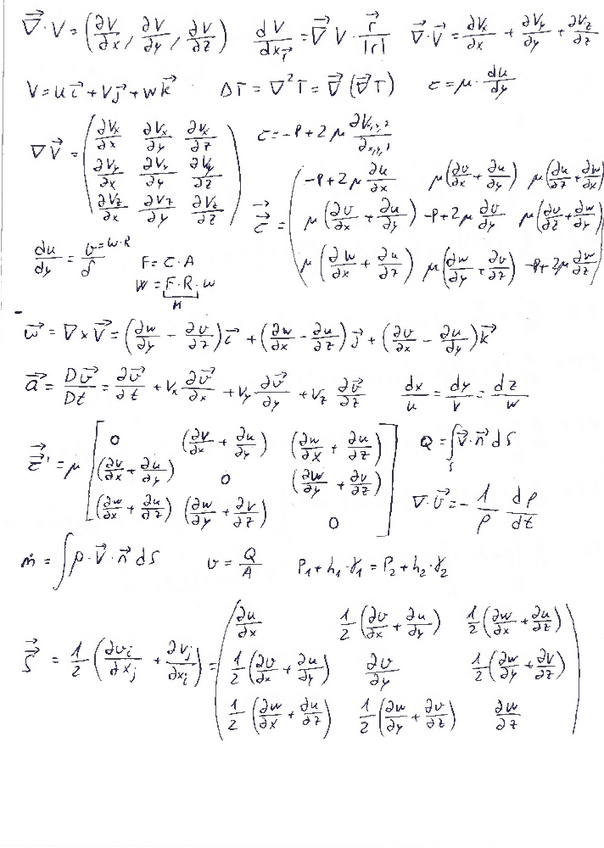 ∇⃗·V = (∂V/∂x, ∂V/∂y, ∂V/∂z)   dV/dx_r⃗ = ∇⃗V · r⃗/|r|   ∇⃗·V⃗ = ∂Vx/∂x + ∂Vy/∂y + ∂Vz/∂z
V = ui⃗ + vj⃗ + wk⃗   ΔT = ∇²T = ∇⃗(∇⃗T)   τ = μ · du/dy
∇V⃗ = (∂Vx/∂x ∂Vx/∂y ∂Vx/∂z; ∂Vy/∂x ∂Vy/∂y ∂Vy/∂z; ∂Vz/∂x ∂Vz/∂y ∂Vz/∂z)   τ = -P + 2μ ∂Vx,y,z/∂x,y,z
τ⃗ = (-P+2μ ∂u/∂x   μ(∂v/∂x + ∂u/∂y)   μ(∂u/∂z + ∂w/∂x); μ(∂v/∂x + ∂u/∂y)   -P+2μ ∂v/∂y   μ(∂v/∂z + ∂w/∂y); μ(∂w/∂x + ∂u/∂z)   μ(∂w/∂y + ∂v/∂z)   -P+2μ ∂w/∂z)
du/dy = v=w·R/δ   F = τ·A
W = F·R·w
M
w⃗ = ∇×V⃗ = (∂w/∂y - ∂v/∂z)i⃗ + (∂w/∂x - ∂u/∂z)j⃗ + (∂v/∂x - ∂u/∂y)k⃗
a⃗ = Dv⃗/Dt = ∂v⃗/∂t + Vx ∂v⃗/∂x + Vy ∂v⃗/∂y + Vz ∂v⃗/∂z   dx/u = dy/v = dz/w
τ⃗' = μ[0   (∂v/∂x + ∂u/∂y)   (∂w/∂x + ∂u/∂z); (∂v/∂x + ∂u/∂y)   0   (∂w/∂y + ∂v/∂z); (∂w/∂x + ∂u/∂z)   (∂w/∂y + ∂v/∂z)   0]   Q = ∫_S v⃗·n⃗ dS
∇·v⃗ = - 1/ρ dρ/dt
ṁ = ∫ρ·V⃗·n⃗ dS   v = Q/A   P₁+h₁·γ₁ = P₂+h₂·γ₂
S⃗ = 1/2 (∂vi/∂xj + ∂vj/∂xi) = (∂u/∂x   1/2(∂v/∂x + ∂u/∂y)   1/2(∂w/∂x + ∂u/∂z); 1/2(∂v/∂x + ∂u/∂y)   ∂v/∂y   1/2(∂w/∂y + ∂v/∂z); 1/2(∂w/∂x + ∂u/∂z)   1/2(∂w/∂y + ∂v/∂z)   ∂w/∂z)